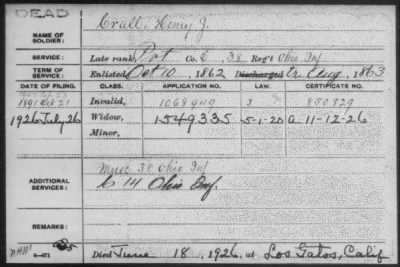 DEAD
NAME OF SOLDIER:
Crall, Henry J.
SERVICE:
Late rank, Pvt Co. C 38 Reg't Ohio Inf
TERM OF SERVICE:
Enlisted Oct 10, 1862 Discharged tr. Aug, 1863
DATE OF FILING. CLASS. APPLICATION NO. LAW. CERTIFICATE NO.
1891 Oct 21 Invalid, 1068949 3 850829
1926 July 26 Widow, 1549335 5-1-20 a 11-12-26
Minor,
ADDITIONAL SERVICES:
38 Ohio Inf
C 14 Ohio Inf.
REMARKS:
Died June 18, 1926, at Los Gatos, Calif